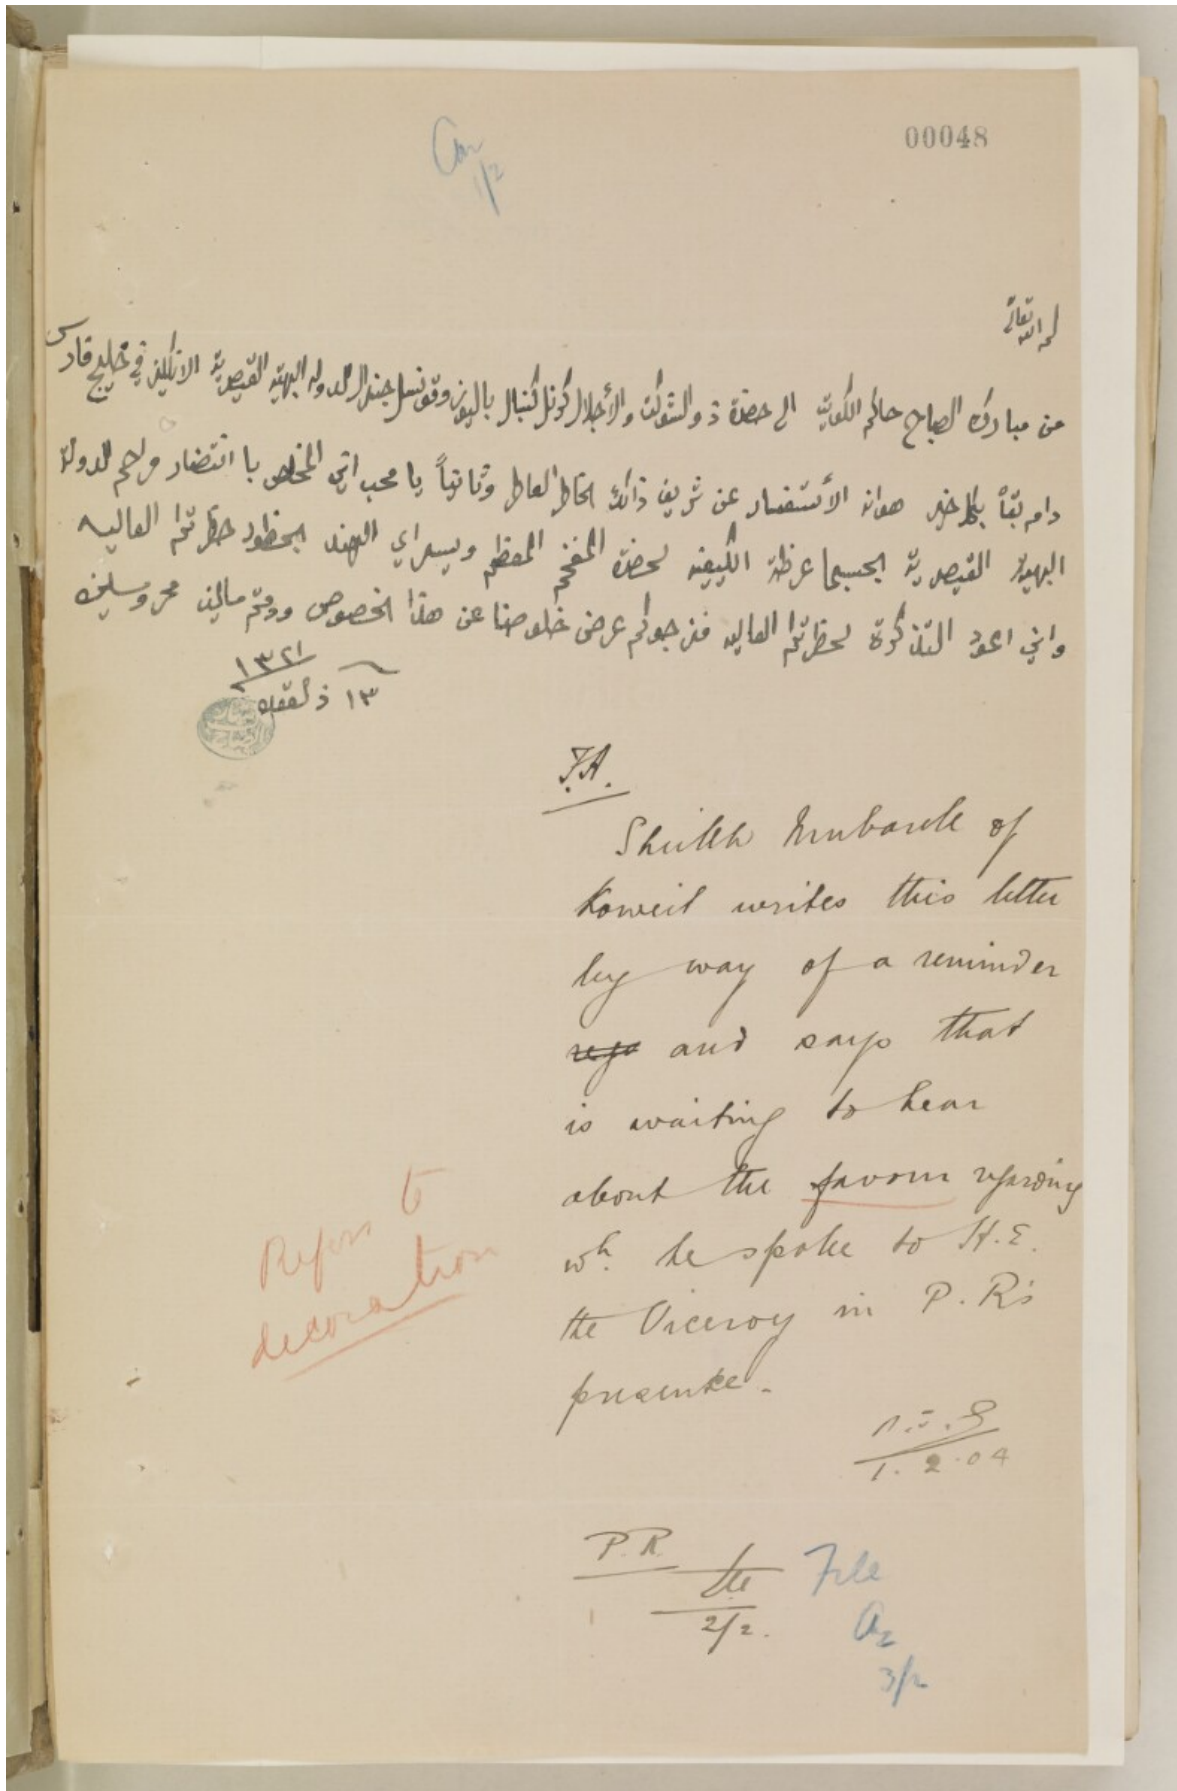 00048
من مبارك الصباح حاكم الكويت الى حضرة ذو الشوكت والأجلال كرنل كنبال باليوز وقونسل جنرال الدوله البهيه القيصرية الانكليز في خليج فارس
دام بقأ بكل خير هوانه الأستفسار عن شريف ذاتك الخاطر العاطر وثانياً يا محب اني المخلص با انتضار مراحم الدولة
البهية القيصرية بحسبما عرظة الكيفيه لحضرة المفخم المعظم ويسراي الهند بحظور حظرتكم العاليه
واني اعود التذكرة لحظرتكم العاليه فنرجوكم عرض خلوصنا عن هذا الخصوص ودمتم سالمين محروسين
١٣٢١
١٣ ذلقعده
F.A.
Sheikh Mubarak of
Koweit writes this letter
by way of a reminder
and says that
is waiting to hear
about the favour regarding
wh. he spoke to H.E.
the Viceroy in P.R's
presence.
1.2.04
Refers to
decoration
P.R.
2/2.
File
3/2